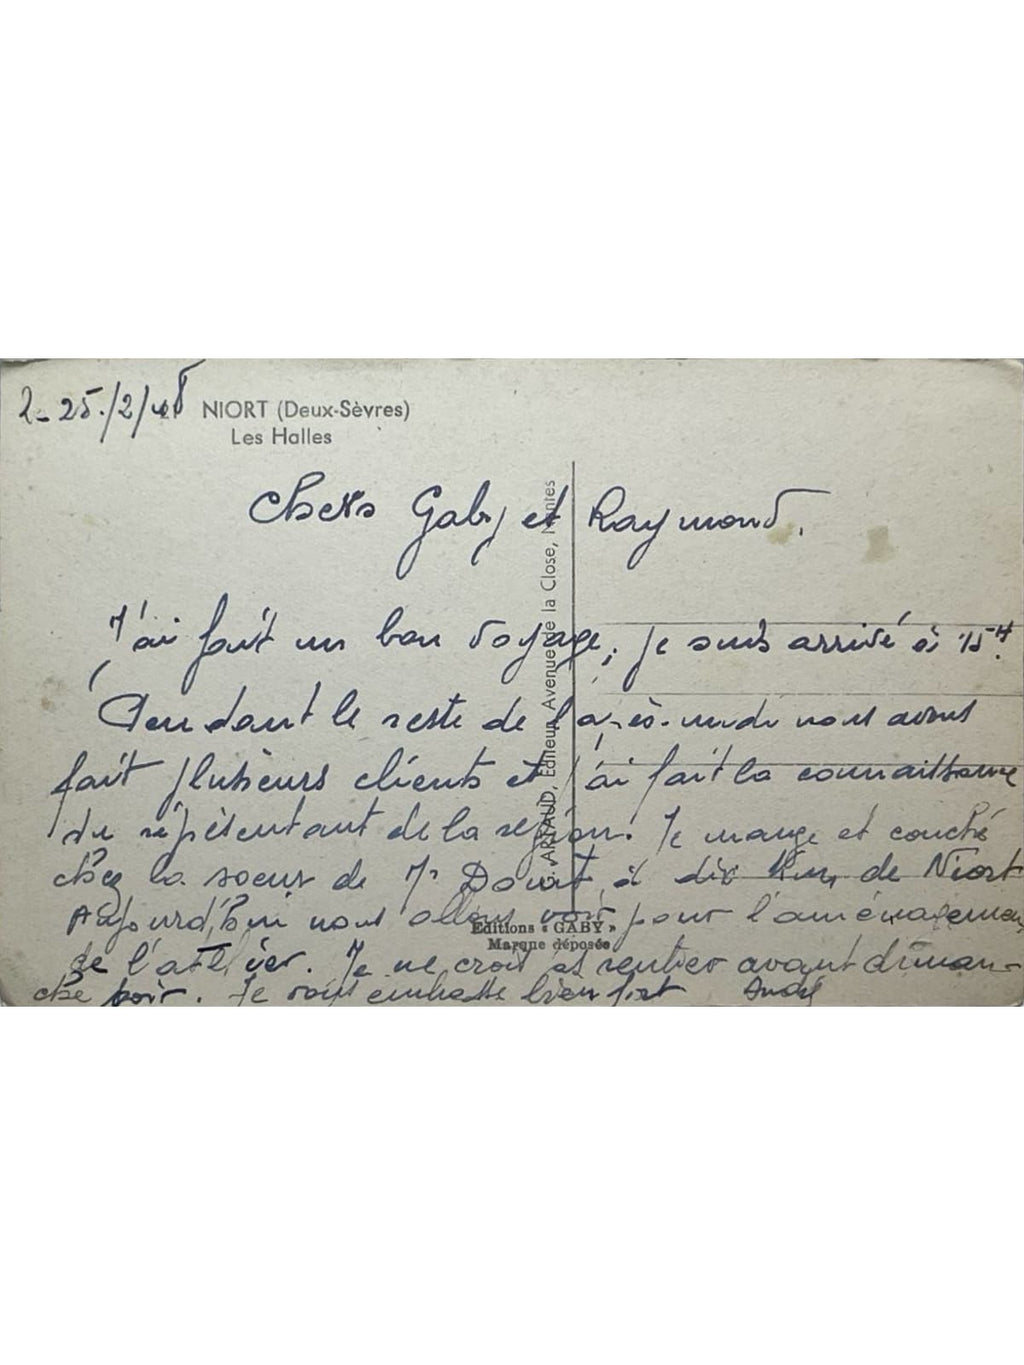 25/2/48 NIORT (Deux-Sèvres)
Les Halles
Chers Gaby et Raymond.
J'ai fait un bon voyage, je suis arrivé à 15H.
Pendant le reste de l'après-midi nous avons
fait plusieurs clients et j'ai fait la connaissance
du représentant de la région. Je mange et couche
chez la soeur de Mr à dix Km de Niort
Aujourd'hui nous allons voir pour l'aménagement
de l'atelier. Je ne crois pas rentrer avant diman-
che soir. Je vous embrasse bien fort André
ARTAUD, Editeur, Avenue de la Close, Nantes
Editions « GABY »
Marque déposée